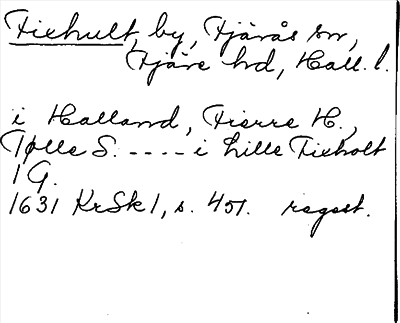 Fixhult, by, Fjärås sn,
Fjäre hd, Hall. l.
i Halland, Fierre H.,
Tølle S. ---- i Lille Fixholt
1 G.
1631 KrSk1, s. 451. regest.